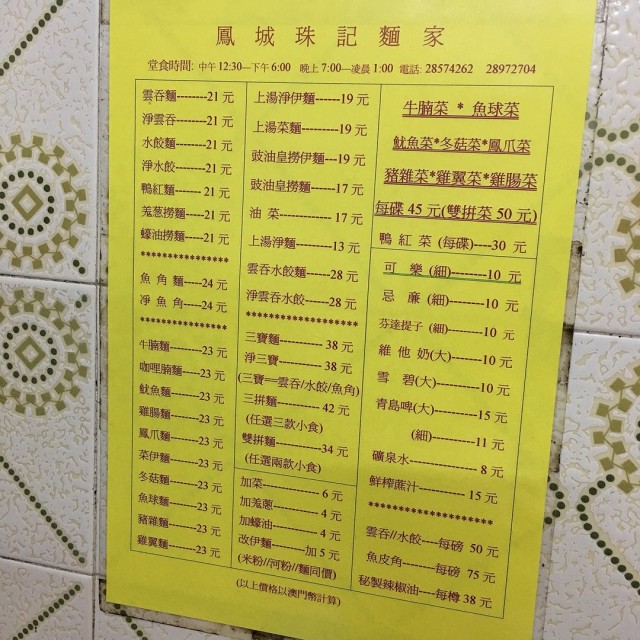 鳳城珠記麵家
堂食時間: 中午 12:30—下午 6:00 晚上 7:00—凌晨 1:00 電話: 28574262 28972704
雲吞麵--------21 元
淨雲吞--------21 元
水餃麵--------21 元
淨水餃--------21 元
鴨紅麵--------21 元
羗葱撈麵-----21 元
蠔油撈麵-----21 元
****************
魚角麵-----24 元
凈魚角-----24 元
****************
牛腩麵--------23 元
咖哩腩麵-----23 元
魷魚麵--------23 元
雞腸麵--------23 元
鳳爪麵--------23 元
菜伊麵--------23 元
冬菇麵--------23 元
魚球麵--------23 元
豬雜麵--------23 元
雞翼麵--------23 元
上湯淨伊麵------19 元
上湯菜麵---------19 元
豉油皇撈伊麵---19 元
豉油皇撈麵------17 元
油菜------------- 17 元
上湯淨麵---------13 元
雲吞水餃麵------28 元
淨雲吞水餃------28 元
*******************
三寶麵----------- 38 元
淨三寶----------- 38 元
(三寶==雲吞/水餃/魚角)
三拼麵----------- 42 元
(任選三款小食)
雙拼麵-----------34 元
(任選兩款小食)
加菜------------- 6 元
加羗蔥---------- 4 元
加蠔油---------- 4 元
改伊麵-------加 5 元
(米粉//河粉//麵同價)
牛腩菜 * 魚球菜
魷魚菜*冬菇菜*鳳爪菜
豬雜菜*雞翼菜*雞腸菜
每碟 45 元(雙拼菜 50 元)
鴨紅菜 (每碟)----30 元
可樂 (細)---------10 元
忌廉 (細)---------10 元
芬達提子 (細)--------10 元
維他奶(大)--------10 元
雪碧(大)-----------10 元
青島啤(大)-----------15 元
(細)-----------11 元
礦泉水-------------- 8 元
鮮榨蔗汁---------- 15 元
*******************
雲吞//水餃----每磅 50 元
魚皮角--------每磅 75 元
秘製辣椒油----每樽 38 元
(以上價格以澳門幣計算)